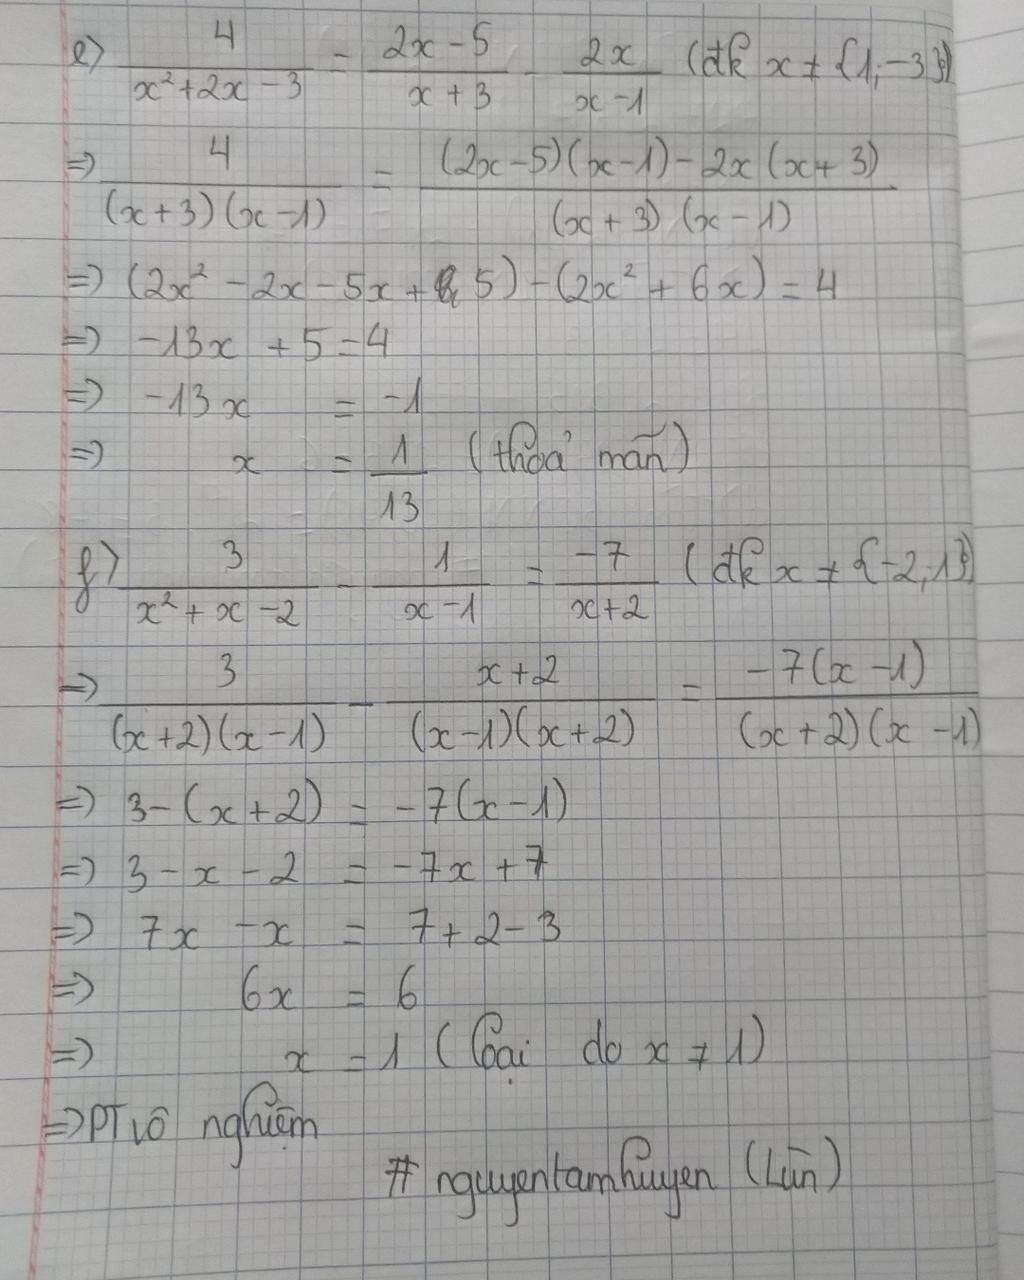 e) 4/(x²+2x-3) = (2x-5)/(x+3) - 2x/(x-1) (đk x ≠ {1;-3})
=> 4/((x+3)(x-1)) = ((2x-5)(x-1)-2x(x+3))/((x+3)(x-1))
=> (2x² - 2x - 5x + 5) - (2x² + 6x) = 4
=> -13x + 5 = 4
=> -13x = -1
=> x = 1/13 (thỏa mãn)
f) 3/(x²+x-2) - 1/(x-1) = -7/(x+2) (đk x ≠ {-2;1})
=> 3/((x+2)(x-1)) - (x+2)/((x-1)(x+2)) = -7(x-1)/((x+2)(x-1))
=> 3-(x+2) = -7(x-1)
=> 3-x-2 = -7x+7
=> 7x -x = 7+2-3
=> 6x = 6
=> x = 1 (loại do x ≠ 1)
=> PT vô nghiệm
# nguyentamhuyen (Lùn)